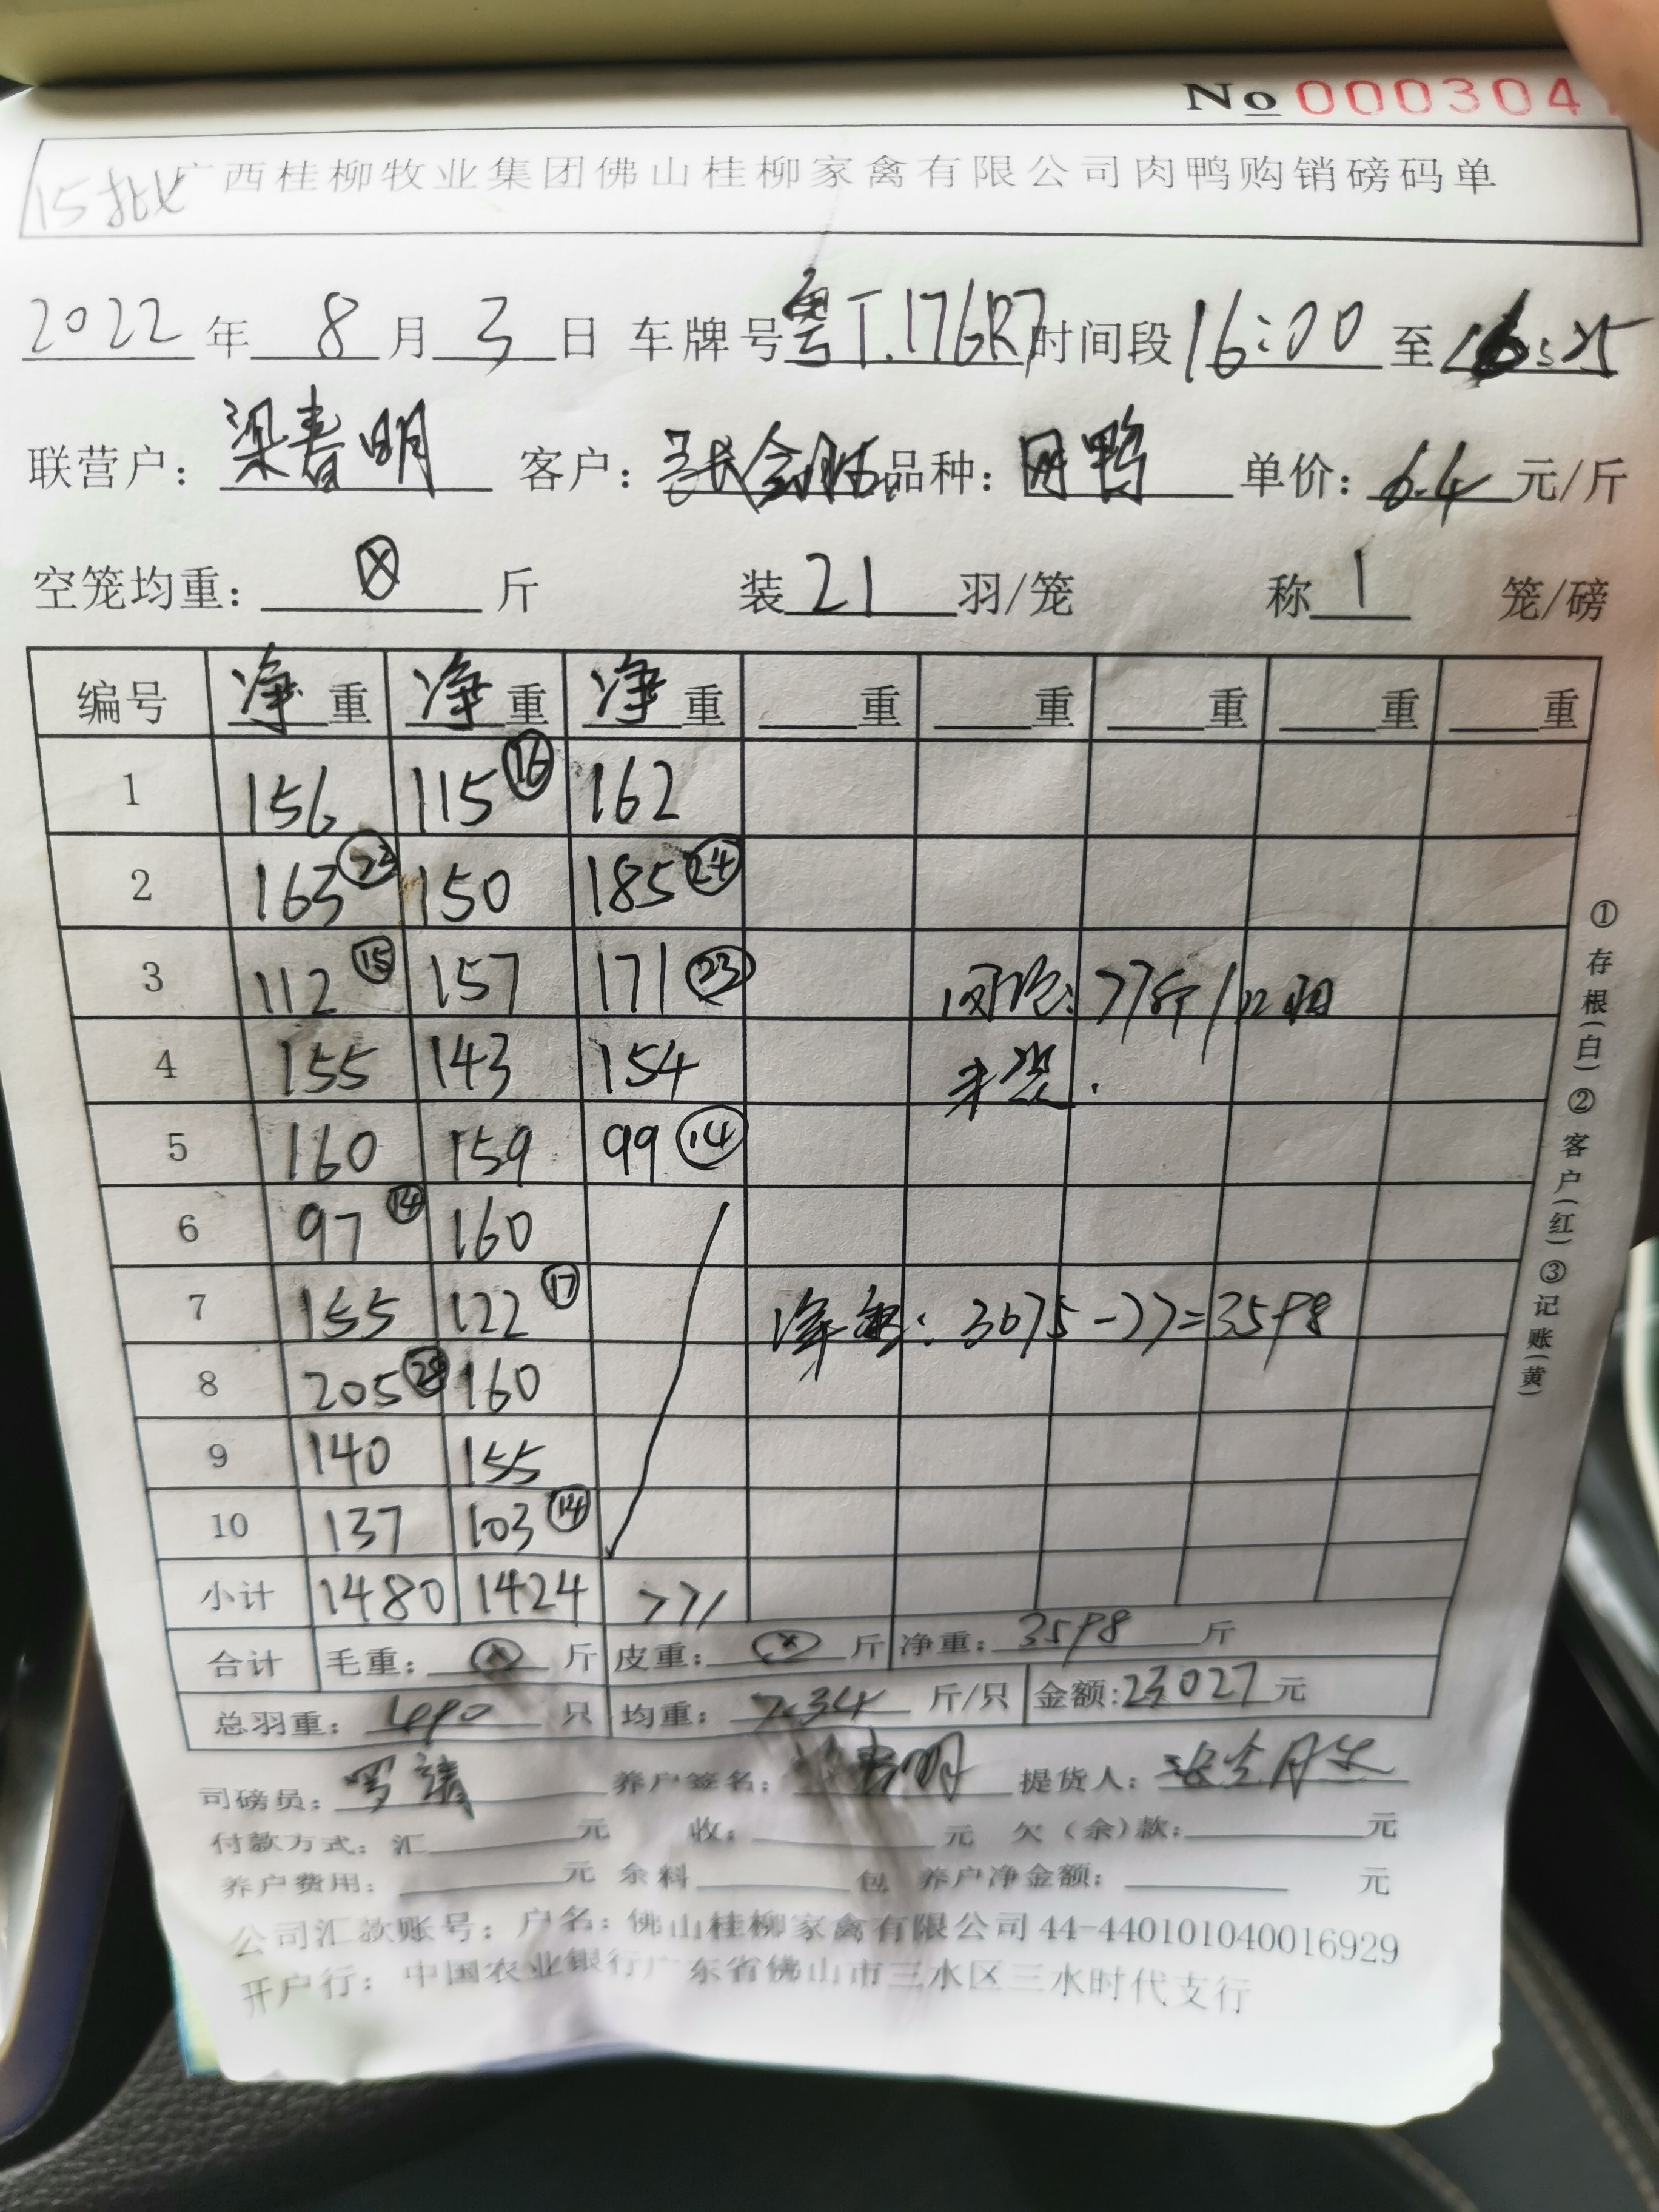 No 000304
15批 广西桂柳牧业集团佛山桂柳家禽有限公司肉鸭购销磅码单
2022 年 8 月 3 日 车牌号 粤T.176R7 时间段 16:00 至 16:25
联营户: 梁春明 客户: 品种: 鸭 单价: 6.4 元/斤
空笼均重: ⊗ 斤 装 21 羽/笼 称 1 笼/磅
编号 净重 净重 净重 重 重 重 重 重
1 156 115 ⑯ 162
2 163 150 185 ㉔
3 112 ⑮ 157 171 ㉓ 77斤/
4 155 143 154
5 160 159 99 ⑭
6 97 ⑭ 160
7 155 122 ⑰ 净重: 3675-77=3598
8 205 ㉘ 160
9 140 155
10 137 103 ⑭
小计 1480 1424 771
合计 毛重: ⊗ 斤 皮重: ⊗ 斤 净重: 3598 斤
总羽重: 490 只 均重: 7.34 斤/只 金额: 23027 元
司磅员: 养户签名: 梁春明 提货人:
付款方式: 汇 元 收: 元 欠(余)款: 元
养户费用: 元 余料 包 养户净金额: 元
公司汇款账号: 户名: 佛山桂柳家禽有限公司 44-440101040016929
开户行: 中国农业银行广东省佛山市三水区三水时代支行
①存根(白)②客户(红)③记账(黄)